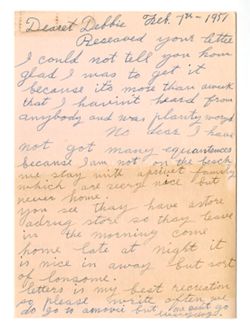 Dearest Debbie Feb. 7th - 1951
Reseaved your letter
I could not tell you how
glad I was to get it
because it's more than a week
that I havin't heard from
anybody and was planty woryd
No dear I have
not got many equantences
because I am not on the beach
me stay with a privet family
which are very nice but
never home.
you see thay have a store
a drug store so thay leave
in the morning come
home late at night it
is nice in away but sort
of lonsome.
letters is my best recreation
so please write often we
do go to a movie but